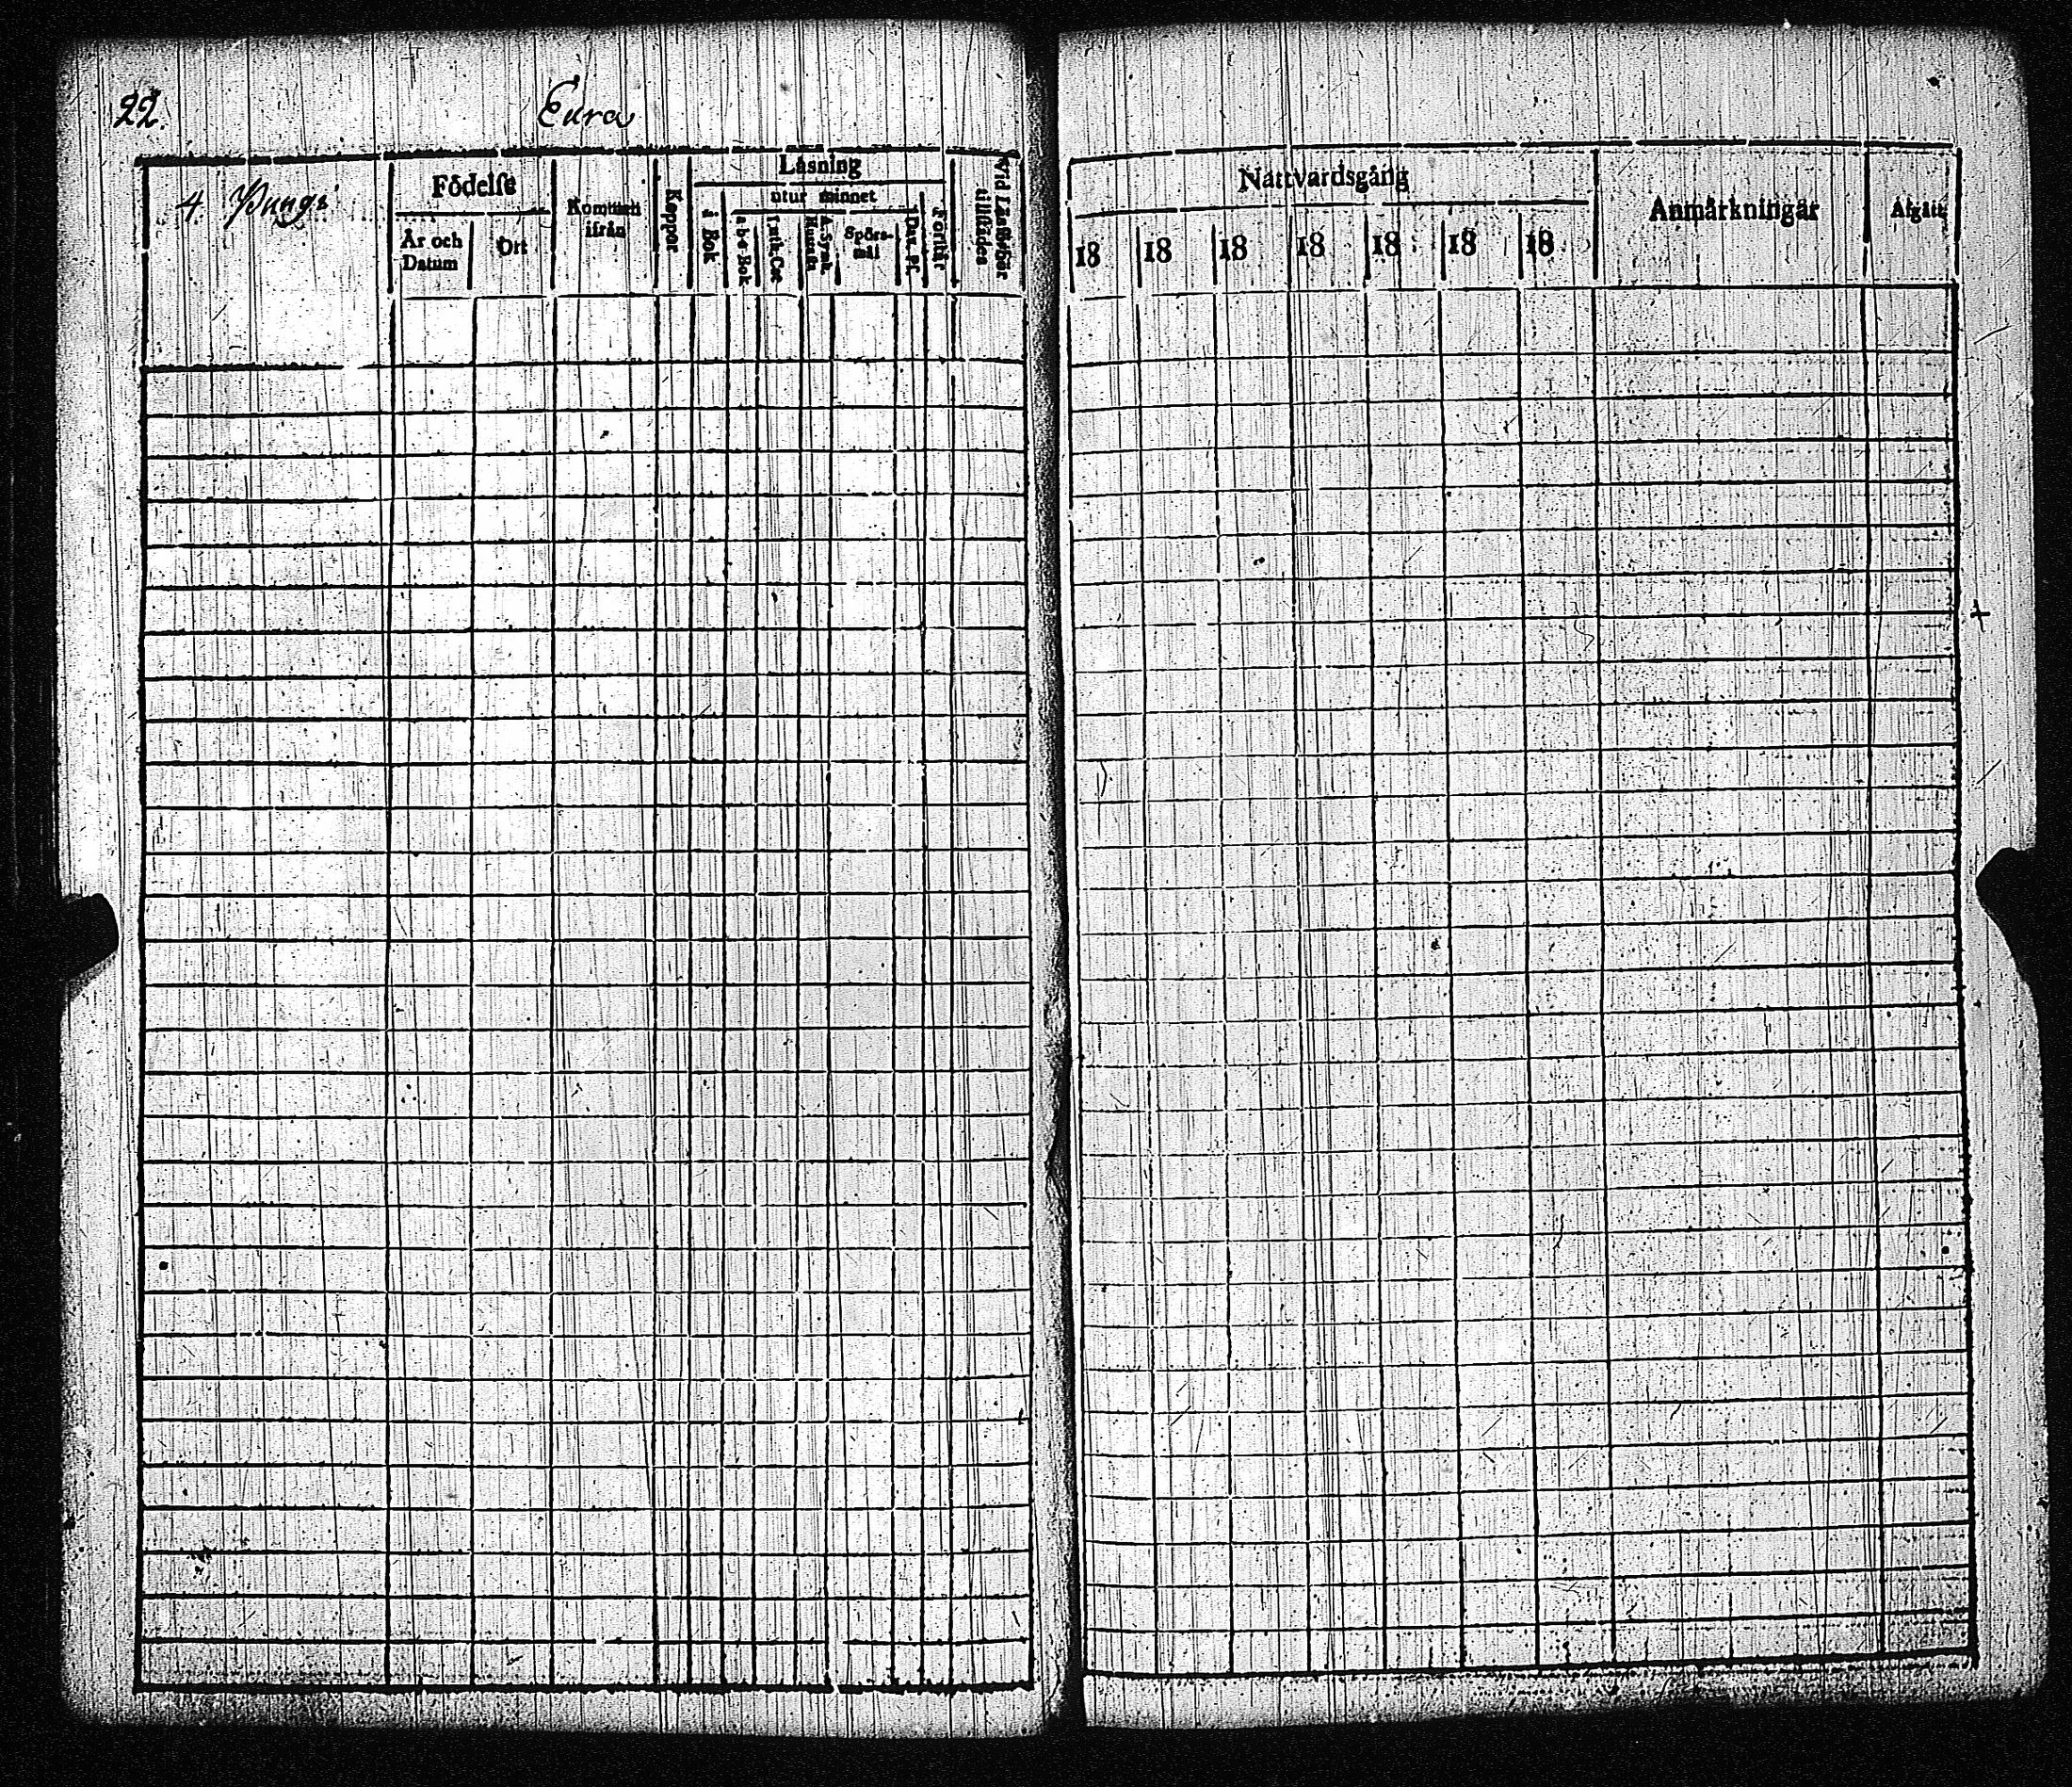 22.
Eura
4 Pungi
Födelse
År och Datum
Ort
Kommen ifrån
Koppor
Läsning
i Bok
utur minnet
a-b-c-Bok
Luth. Cat.
A. Symb. Hustafla
Spörs-mål
Dav. Ps.
Förstår
Vid Läseförhör tillstädes
Nattvardsgång
18 18 18 18 18 18 18
Anmärkningar
Afgått